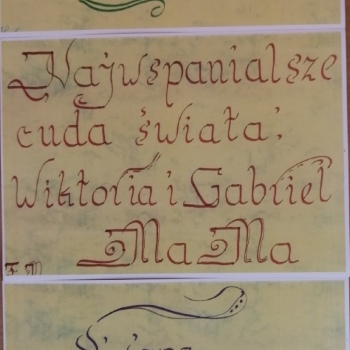 Najwspanialsze
cuda świata:
Wiktoria i Gabriel
Ma Ma
F. M